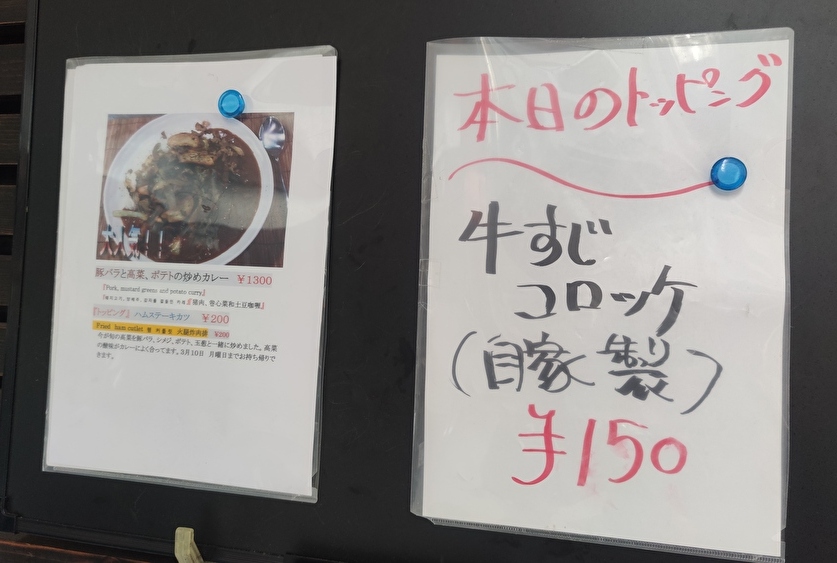 豚バラと高菜、ポテトの炒めカレー ￥1300
『Pork, mustard greens and potato curry』
猪肉、卷心菜和土豆咖喱』
『トッピング』 ハムステーキカツ ￥200
Fried ham cutlet 火腿炸肉排 ￥200
今が旬の高菜を豚バラ、シメジ、ポテト、玉葱と一緒に炒めました。高菜
の酸味がカレーによく合ってます。3月10日 月曜日までお持ち帰りで
きます。
本日のトッピング
牛すじ
コロッケ
(自家製)
￥150